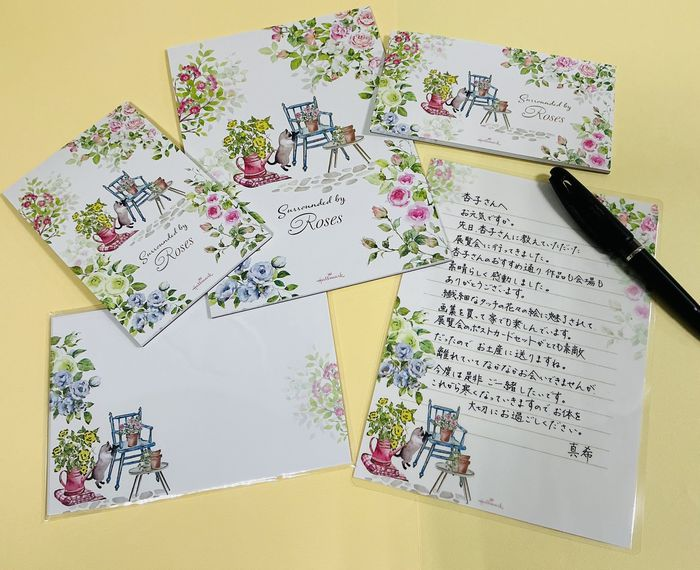 Surrounded by
Roses
Hallmark
Surrounded by
Roses
Hallmark
Surrounded by
Roses
Hallmark
杏子さんへ
お元気ですか。
先日杏子さんに教えていただいた
展覧会に行ってきました。
杏子さんのおすすめ通り作品も会場も
素晴らしく感動しました。
ありがとうございます。
繊細なタッチの花々の絵に魅了されて
画集を買って家でも楽しんでいます。
展覧会のポストカードセットがとても素敵
だったのでお土産に送りますね。
離れていてなかなかお会いできませんが
今度は是非ご一緒したいです。
これから寒くなっていきますのでお体を
大切にお過ごしください。
真希
Hallmark
Hallmark